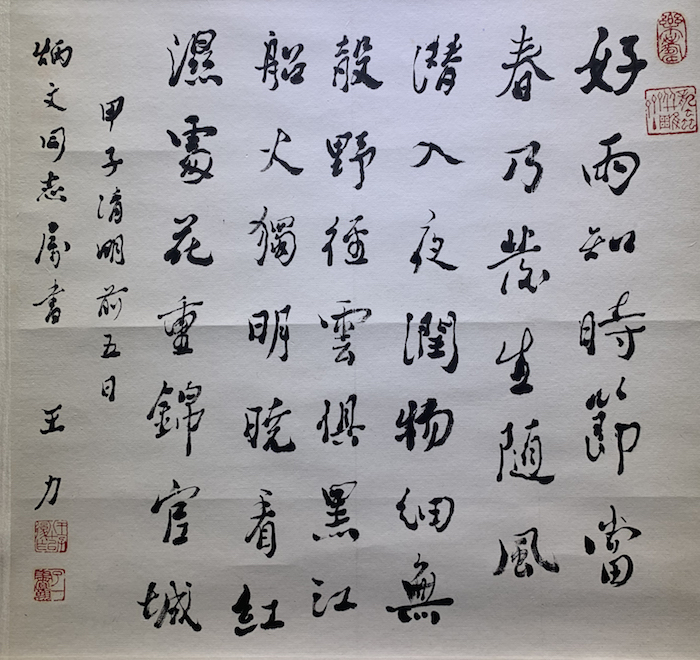 好雨知時節當
春乃發生随風
潛入夜潤物細無
聲野徑雲俱黑江
船火獨明曉看紅
濕處花重錦官城
甲子清明前五日
炳文同志属書 王力